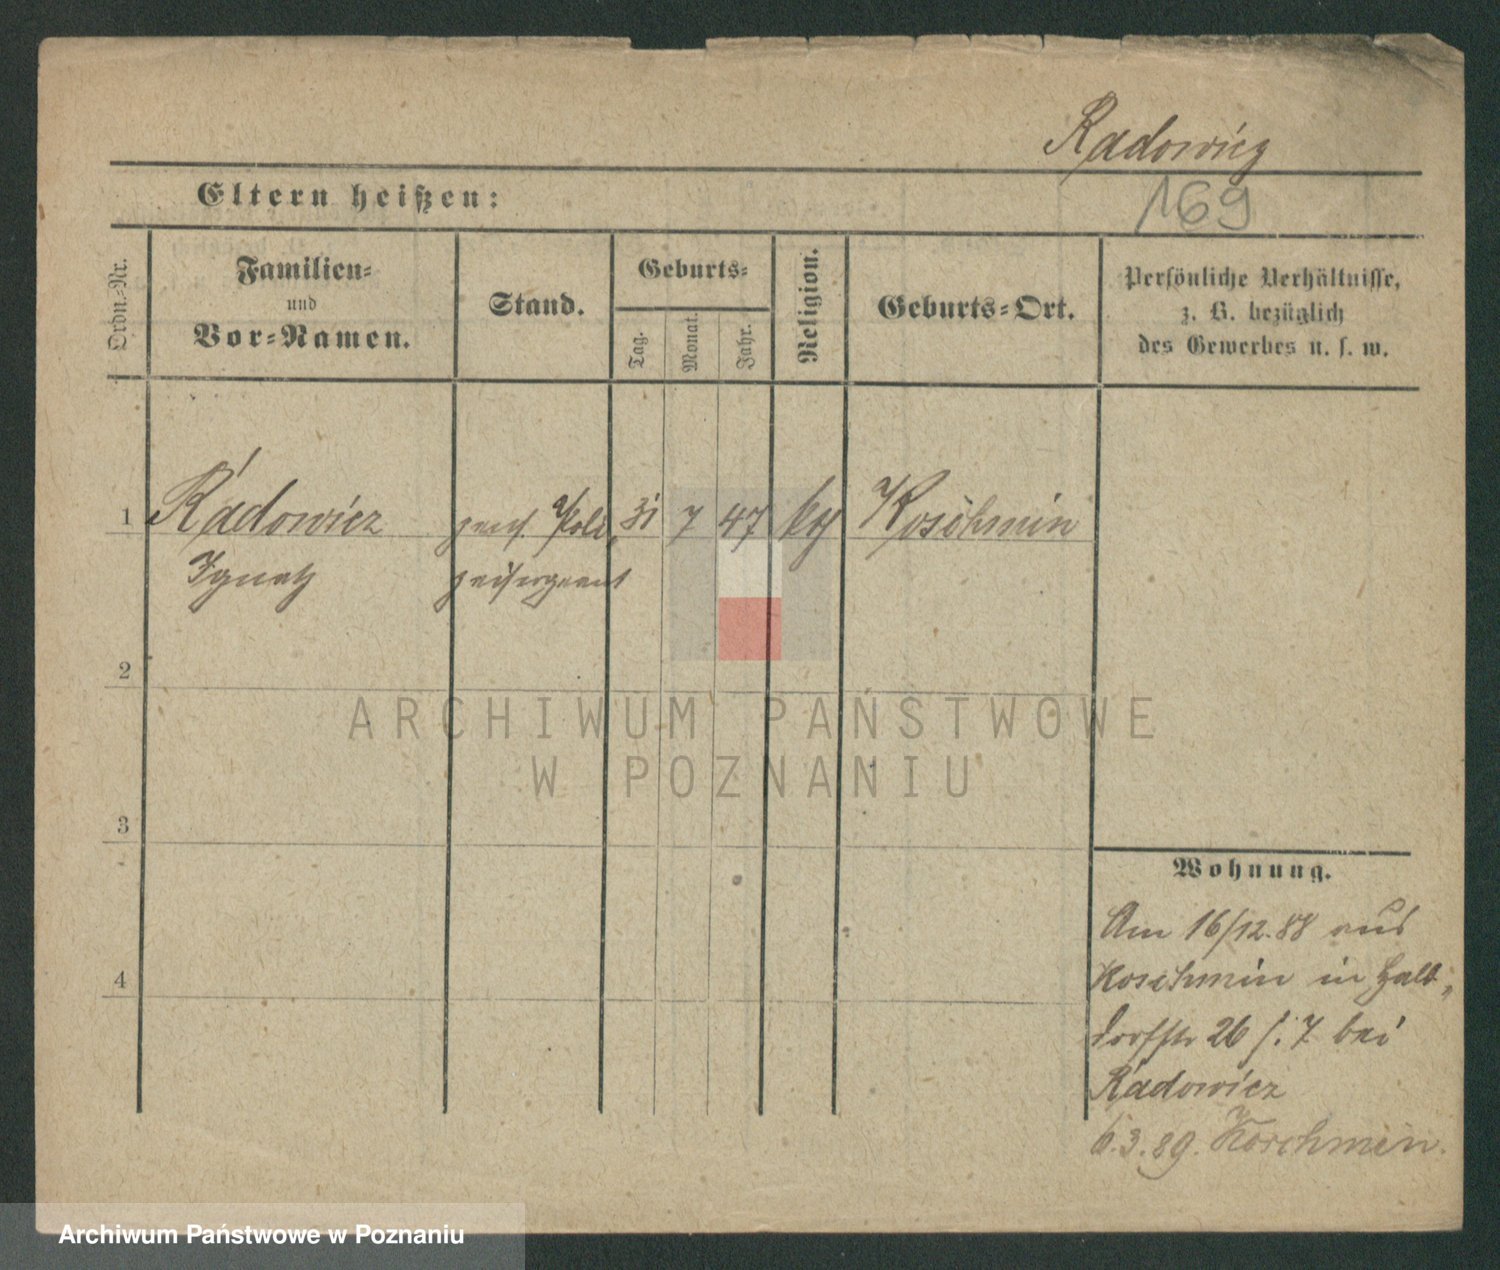 Radowicz
169
Eltern heißen:
Ordn.-Nr.
Familien-
und
Vor-Namen.
Stand.
Geburts-
Tag.
Monat.
Jahr.
Religion.
Geburts-Ort.
Persönliche Verhältnisse,
z. B. bezüglich
des Gewerbes u. s. w.
1 Radowicz Poli- 31 7 47 Koschmin
Ignatz zeisergeant
2
3
4
Wohnung.
Am 16/12.88 aus
Koschmin in Halb-
dorfstr 26 7 bei
Radowicz
6.3.89. Koschmin.
ARCHIWUM PAŃSTWOWE
W POZNANIU
Archiwum Państwowe w Poznaniu